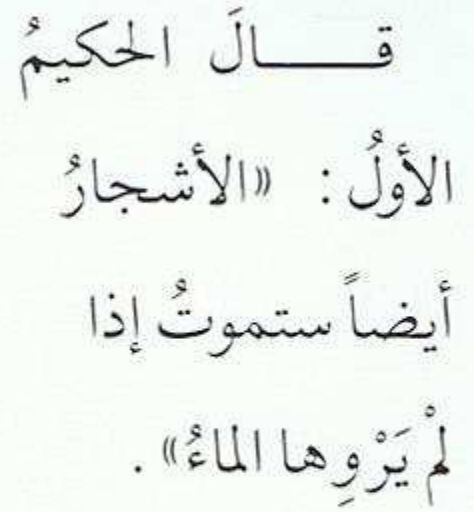 قـــــالَ الحكيمُ
الأولُ: «الأشجارُ
أيضاً ستموتُ إذا
لمْ يَرْوِها الماءُ».